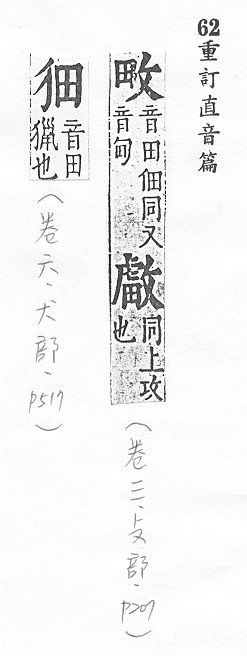 62重訂直音篇
畋
音田佃同又
音甸
同上攻
也
(卷三、攴部、p207)
音田
獵也
(卷六、犬部、p517)